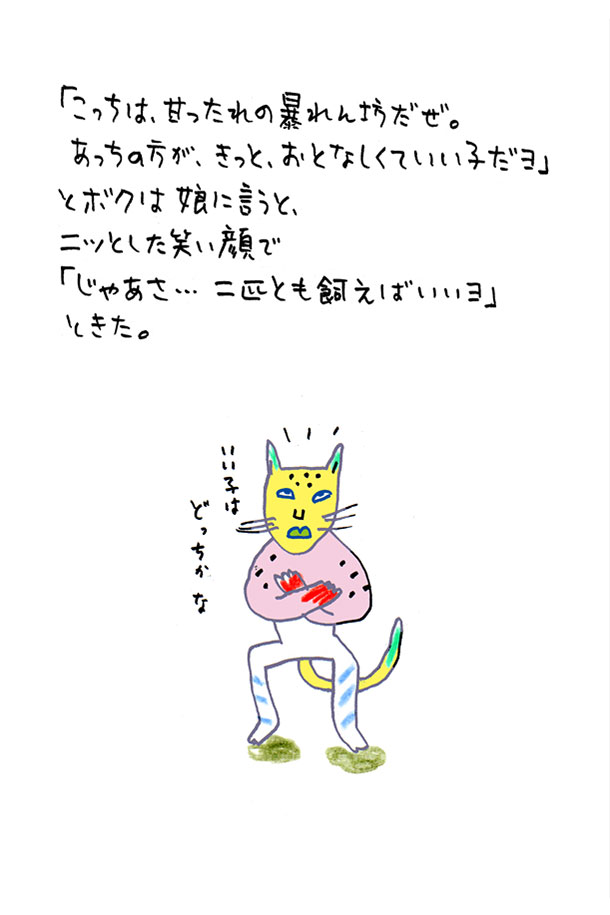 「こっちは、甘ったれの暴れん坊だぜ。
あっちの方が、きっと、おとなしくていい子だヨ」
とボクは娘に言うと、
ニッとした笑い顔で
「じゃあさ… 二匹とも飼えばいいヨ」
ときた。
いい子は
どっちかな